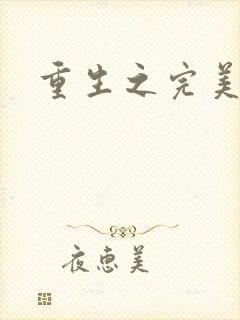 重生之完美
夜惠美